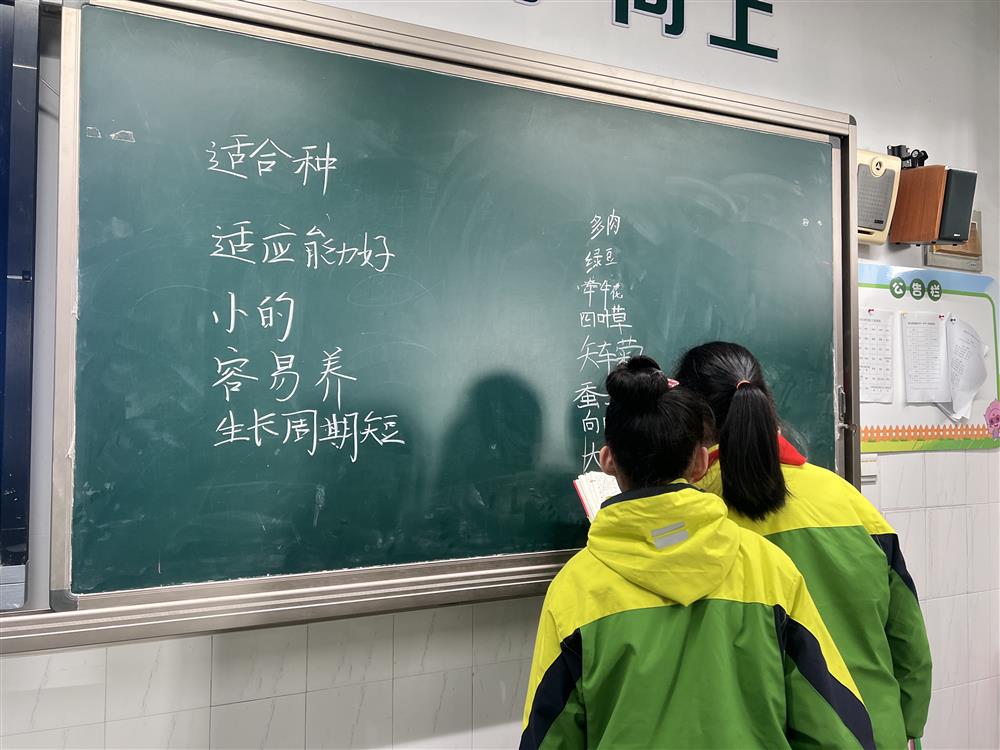 向上
适合种
适应能力好
小的
容易养
生长周期短
多肉
绿豆
牵牛花
四叶草
矢车菊
蚕
向
大
公告栏